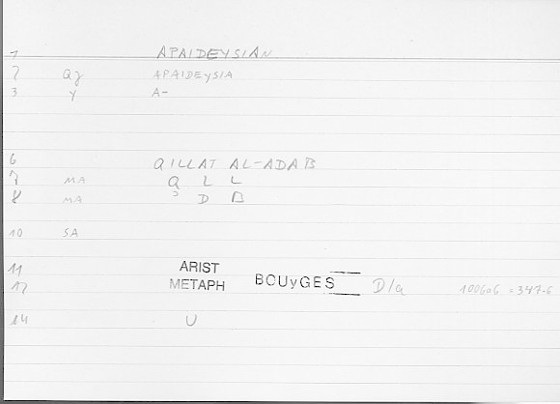 1 APAIDEYSIAN
2 QZ APAIDEYSIA
3 Y A-
6 QILLAT AL-ADAB
7 MA Q L L
8 MA ʾ D B
10 SA
11 ARIST
12 METAPH BOUyGES D/a 1006a6 = 347.6
14 U